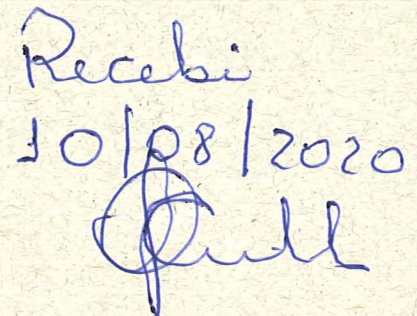 Recebi
10/08/2020